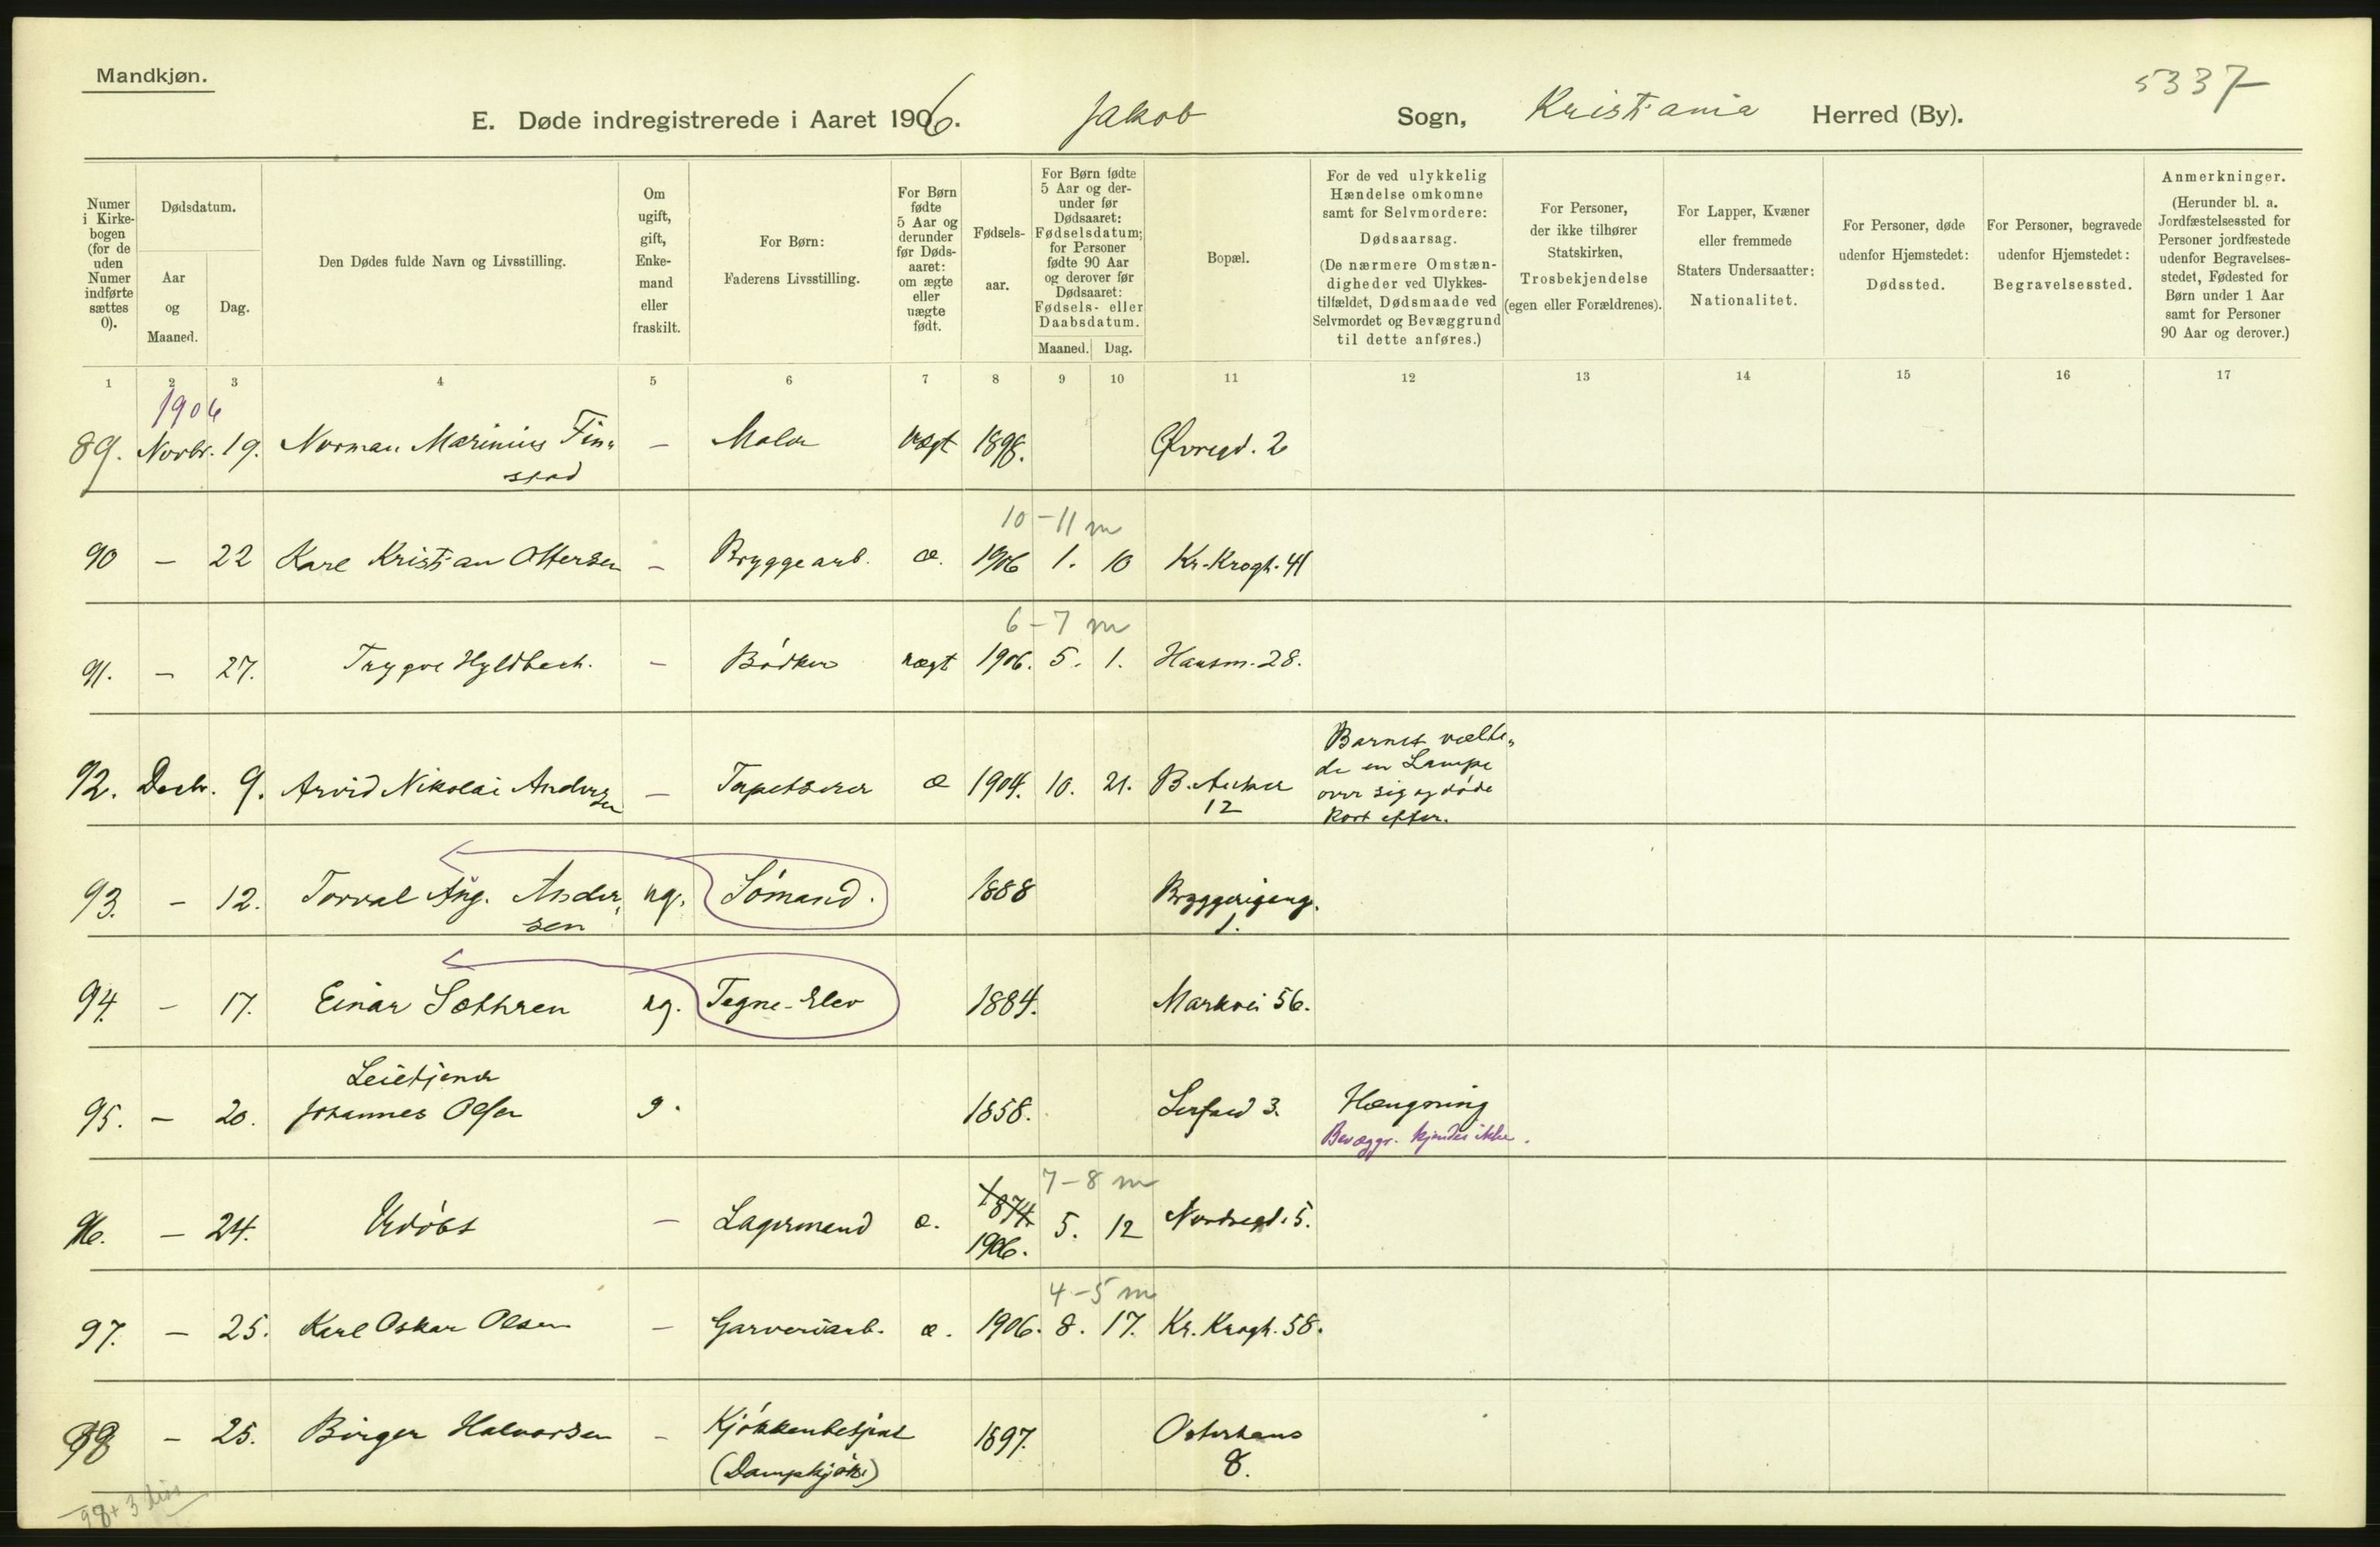 Mandkjøn.
5337
E. Døde indregistrerede i Aaret 1906. Jakob Sogn, Kristiania Herred (By).
Numer i Kirkebogen (for de uden Numer indførte sættes 0).
Dødsdatum.
Aar og Maaned.
Dag.
Den Dødes fulde Navn og Livsstilling.
Om ugift, gift, Enkemand eller fraskilt.
For Børn: Faderens Livsstilling.
For Børn fødte 5 Aar og derunder før Dødsaaret: om ægte eller uægte født.
Fødselsaar.
For Børn fødte 5 Aar og derunder før Dødsaaret: Fødselsdatum; for Personer fødte 90 Aar og derover før Dødsaaret: Fødsels- eller Daabsdatum.
Maaned. Dag.
Bopæl.
For de ved ulykkelig Hændelse omkomne samt for Selvmordere: Dødsaarsag. (De nærmere Omstændigheder ved Ulykkestilfældet, Dødsmaade ved Selvmordet og Bevæggrund til dette anføres.)
For Personer, der ikke tilhører Statskirken, Trosbekjendelse (egen eller Forældrenes).
For Lapper, Kvæner eller fremmede Staters Undersaatter: Nationalitet.
For Personer, døde udenfor Hjemstedet: Dødssted.
For Personer, begravede udenfor Hjemstedet: Begravelsessted.
Anmerkninger. (Herunder bl. a. Jordfæstelsessted for Personer jordfæstede udenfor Begravelsesstedet, Fødested for Børn under 1 Aar samt for Personer 90 Aar og derover.)
1 2 3 4 5 6 7 8 9 10 11 12 13 14 15 16 17
1906
89. Novbr. 19. Norman Marinius Fin„ — Maler uægt 1898. Øvregd. 2
stad
10-11 m
90 — 22 Karl Kristian Ottersen — Bryggearb. æ. 1906 1. 10 Kr. Krogh. 41
6-7 m
91. — 27. Trygve Hyldbech. — Bødker uægt 1906. 5. 1. Hausm. 28.
Barnet vælte„
de en Lampe
92. Decbr. 9. Arvid Nikolai Ander — Tapetserer æ 1904. 10. 21. B. Anker over sig og døde
sen 12 kort efter.
93. — 12. Torval Aug. Ander„ ug. Sømand. 1888 Bryggerigang.
sen 1.
94. — 17. Einar Sæthren ug. Tegne-Elev 1884. Markvei 56.
Leietjener
95. — 20. Johannes Olsen g. 1858. 3. Hængning
Bevæggr. kjendes ikke.
7-8 m
1874
96. — 24. Udøbt — Lagermand æ. 5. 12 Nordregd. 5.
1906.
4-5 m
97. — 25. Karl Oskar Olsen — Garveriarb. æ. 1906. 8. 17. Kr. Krogh. 58.
98 — 25. Birger Halvorsen — Kjøkkenbetjent 1897. Osterhaus
(Dampkjøk.) 8.
98+3